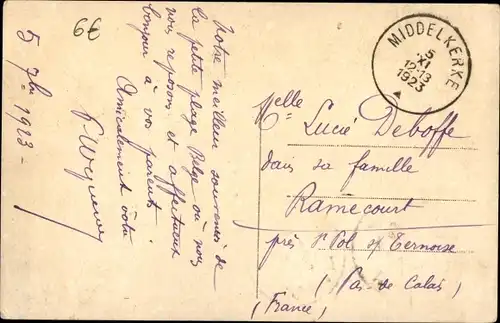 66
5 7bre 1923 -
Notre meilleur souvenir de
la petite plage Belge où nous
nous reposons et affectueux
bonjour à vos parents.
Amicalement vôtre
MIDDELKERKE
5
XI
12-13
1923
Melle Lucie Deboffe
dans sa famille
Ramecourt
près St Pol s/ Ternoise
(Pas-de-Calais)
(France)